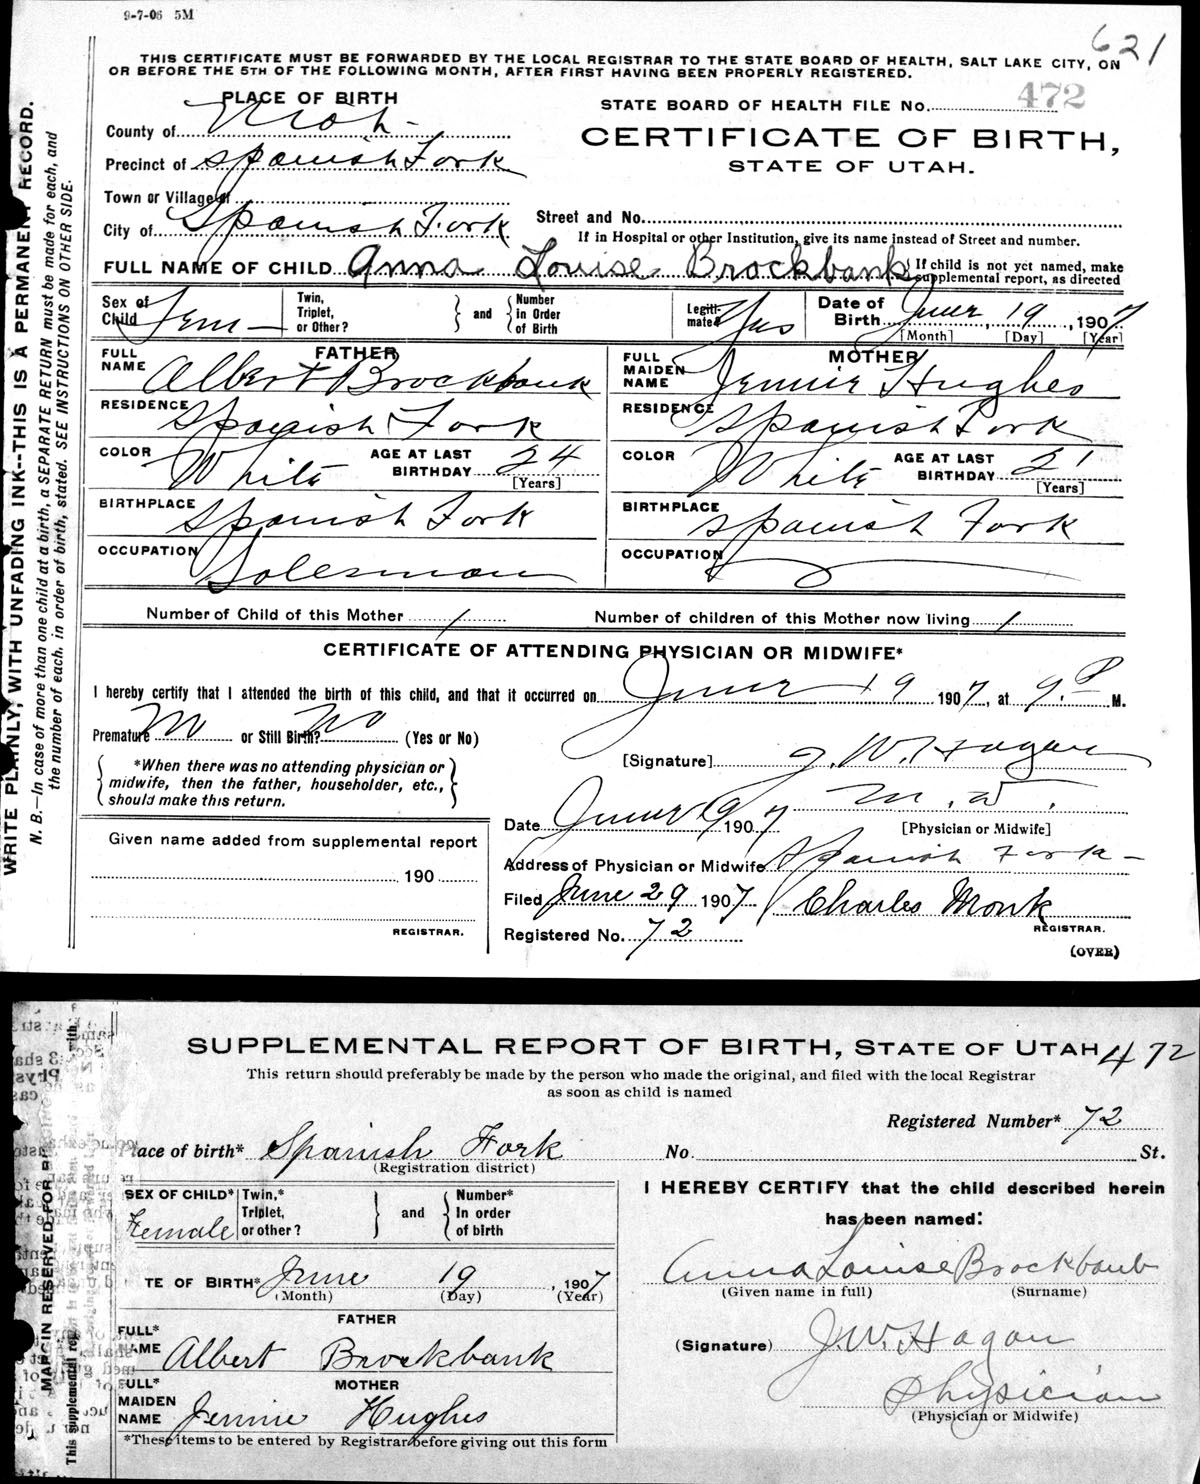 9-7-06 5M
621
THIS CERTIFICATE MUST BE FORWARDED BY THE LOCAL REGISTRAR TO THE STATE BOARD OF HEALTH, SALT LAKE CITY, ON
OR BEFORE THE 5TH OF THE FOLLOWING MONTH, AFTER FIRST HAVING BEEN PROPERLY REGISTERED.
PLACE OF BIRTH
STATE BOARD OF HEALTH FILE No. 472
County of Utah
CERTIFICATE OF BIRTH,
Precinct of Spanish Fork
STATE OF UTAH.
Town or Village of
City of Spanish Fork
Street and No.
If in Hospital or other Institution, give its name instead of Street and number.
FULL NAME OF CHILD Anna Louise Brockbank
If child is not yet named, make
supplemental report, as directed
Sex of Child Fem
Twin, Triplet, or Other? } and { Number in Order of Birth
Legitimate? Yes
Date of Birth June 19, 1907
[Month] [Day] [Year]
FATHER
FULL NAME Albert Brockbank
MOTHER
FULL MAIDEN NAME Jennie Hughes
RESIDENCE Spanish Fork
RESIDENCE Spanish Fork
COLOR White AGE AT LAST BIRTHDAY 24 [Years]
COLOR White AGE AT LAST BIRTHDAY 21 [Years]
BIRTHPLACE Spanish Fork
BIRTHPLACE Spanish Fork
OCCUPATION Salesman
OCCUPATION
Number of Child of this Mother 1
Number of children of this Mother now living 1
CERTIFICATE OF ATTENDING PHYSICIAN OR MIDWIFE*
I hereby certify that I attended the birth of this child, and that it occurred on June 19 1907, at 9 P M.
Premature No or Still Birth? No (Yes or No)
*When there was no attending physician or
midwife, then the father, householder, etc.,
should make this return.
[Signature] J. W. Hagan
M. D.
Date June 19 1907
[Physician or Midwife]
Given name added from supplemental report
190
REGISTRAR.
Address of Physician or Midwife Spanish Fork
Filed June 29 1907 Charles Monk
REGISTRAR.
Registered No. 72
(OVER)
WRITE PLAINLY, WITH UNFADING INK--THIS IS A PERMANENT RECORD.
N. B.—In case of more than one child at a birth, a SEPARATE RETURN must be made for each, and
the number of each, in order of birth, stated. SEE INSTRUCTIONS ON OTHER SIDE.
SUPPLEMENTAL REPORT OF BIRTH, STATE OF UTAH 472
This return should preferably be made by the person who made the original, and filed with the local Registrar
as soon as child is named
Registered Number* 72
Place of birth* Spanish Fork No. St.
(Registration district)
SEX OF CHILD* Female
Twin,* Triplet, or other? } and { Number* In order of birth
I HEREBY CERTIFY that the child described herein
has been named:
TE OF BIRTH* June 19, 1907
(Month) (Day) (Year)
Anna Louise Brockbank
(Given name in full) (Surname)
FATHER
FULL* NAME Albert Brockbank
(Signature) J. W. Hagan
MOTHER
FULL* MAIDEN NAME Jennie Hughes
Physician
(Physician or Midwife)
*These items to be entered by Registrar before giving out this form
MARGIN RESERVED FOR
This supplemental report